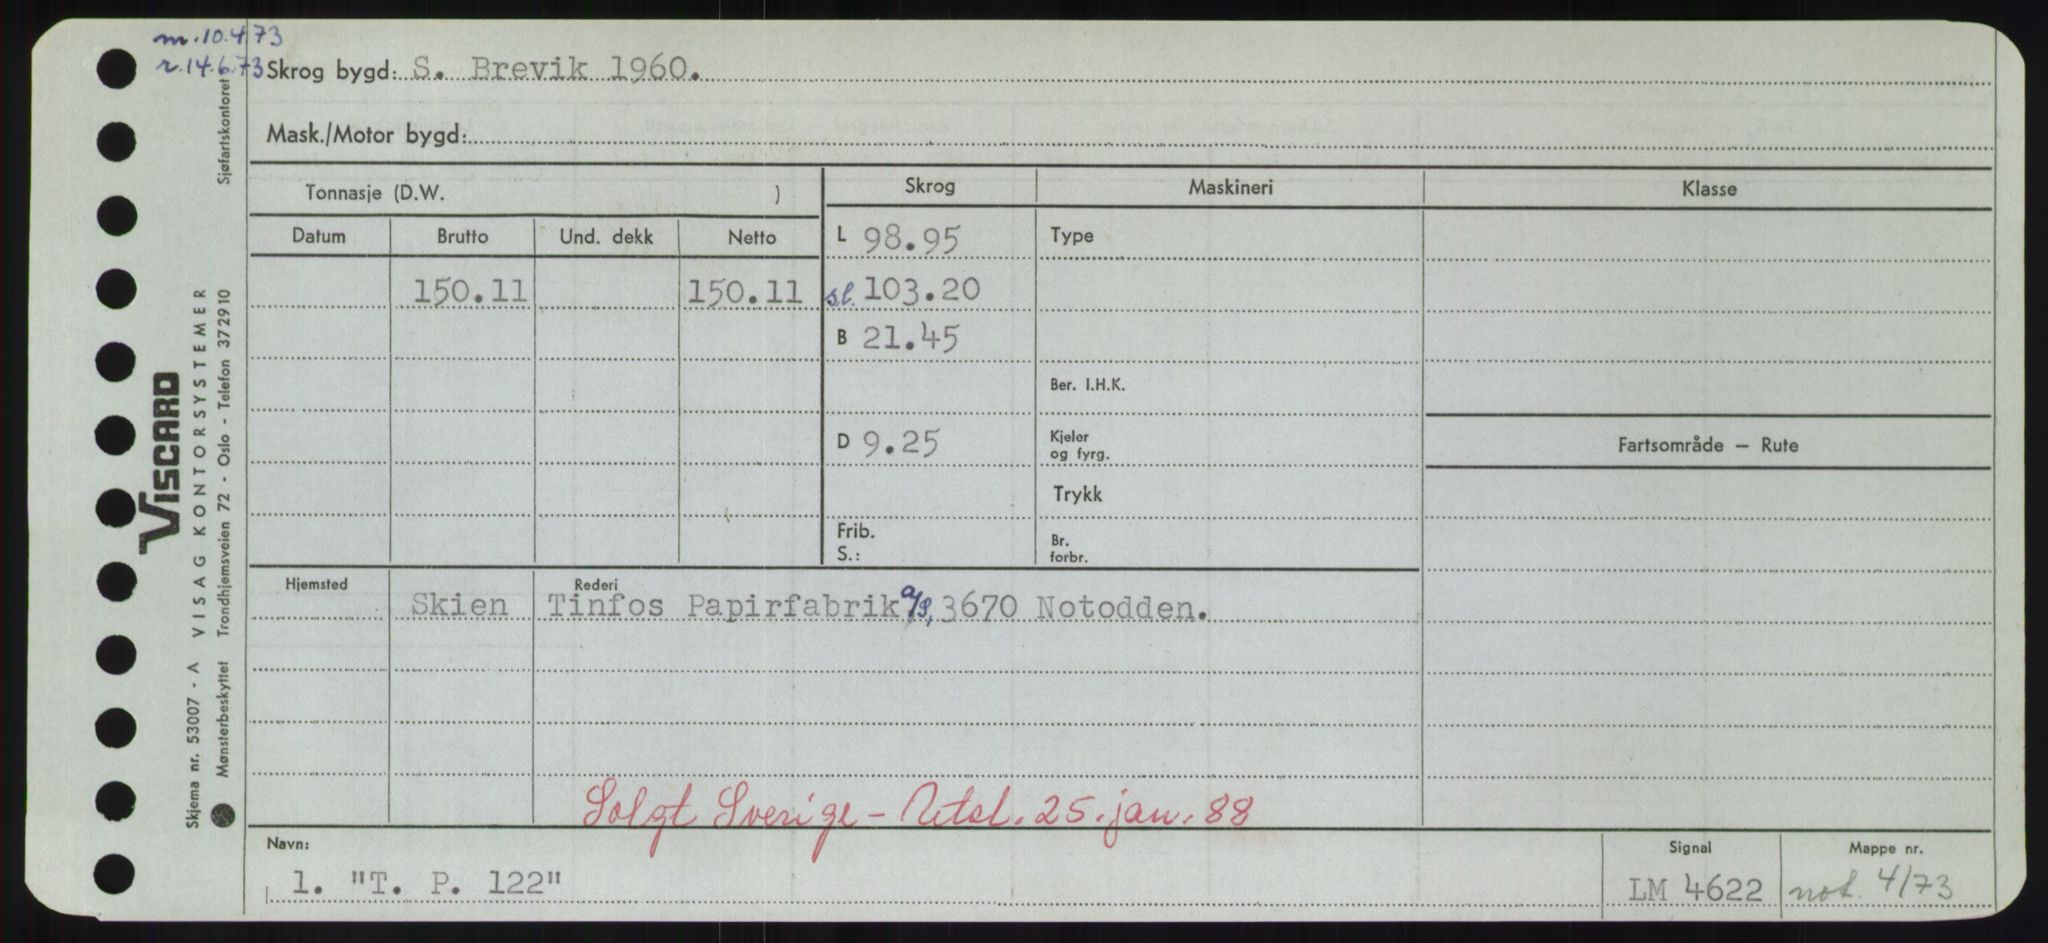 m.10.4.73
r.14.6.73
Skrog bygd: S. Brevik 1960.
Mask./Motor bygd:
Tonnasje (D.W. )
Skrog
Maskineri
Klasse
Datum Brutto Und. dekk Netto
L 98.95
Type
150.11 150.11
s.l. 103.20
B 21.45
Ber. I.H.K.
D 9.25
Kjeler
og fyrg.
Fartsområde — Rute
Trykk
Frib.
S.:
Br.
forbr.
Hjemsted
Rederi
Skien Tinfos Papirfabrik a/s, 3670 Notodden.
Solgt Sverige - Utsl. 25. jan. 88
Navn:
1. "T. P. 122"
Signal
LM 4622
Mappe nr.
not. 4/73
VISCARD
Skjema nr. 53007 - A VISAG KONTORSYSTEMER
Mønsterbeskyttet Trondhjemsveien 72 - Oslo - Telefon 372910 Sjøfartskontoret